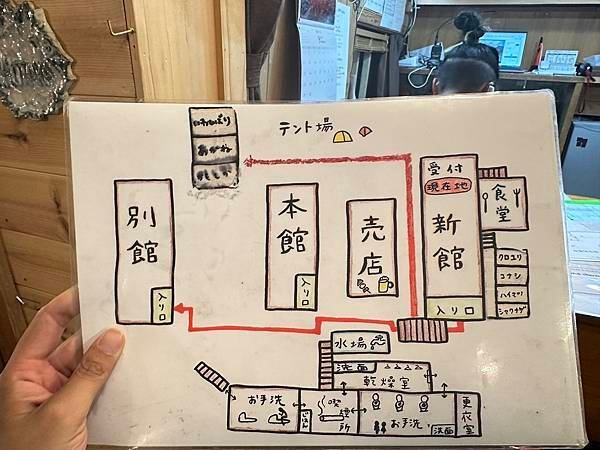 テント場
いわひばり
別館
入り口
本館
入り口
売店
受付
現在地
新館
入り口
食堂
クロユリ
コナシ
ハイマツ
シャクナゲ
水場
洗面
乾燥室
お手洗
喫煙所
お手洗
洗面
更衣室